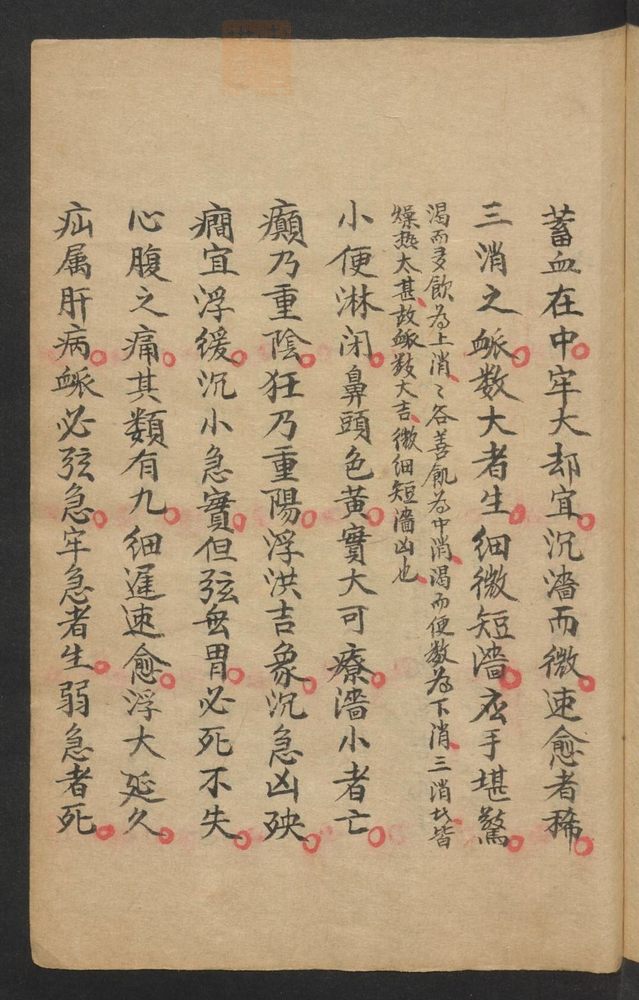 蓄血在中牢大却宜沉濇而微速愈者稀
三消之脈数大者生細微短濇应手堪驚
渴而多飲为上消〻谷善飢为中消渴而便数为下消三消者皆
燥热太甚故脈数大吉微細短濇凶也
小便淋闭鼻頭色黄實大可療濇小者亡
癲乃重陰狂乃重陽浮洪吉象沉急凶殃
癎宜浮緩沉小急實但弦無胃必死不失
心腹之痛其類有九細遲速愈浮大延久
疝属肝病脈必弦急牢急者生弱急者死